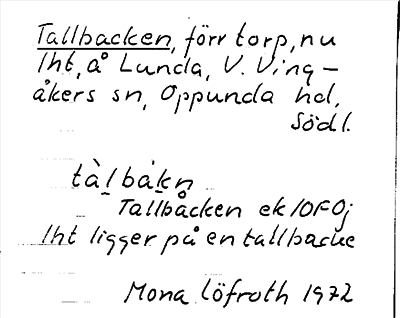 Tallbacken, förr torp, nu
lht, å Lunda, V. Ving-
åkers sn, Oppunda hd,
Södl.
tàl̠bák̠n̥
Tallbacken ek 10F0j
lht ligger på en tallbacke
Mona Löfroth 1972